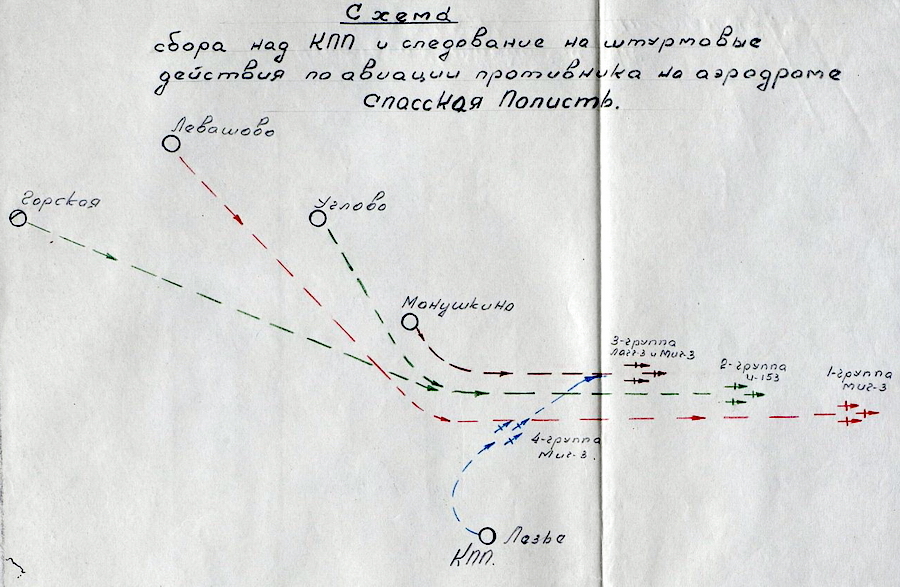 Схема
сбора над КПП и следование на штурмовые
действия по авиации противника на аэродроме
Спасская Полисть.
Левашово
Горская
Углово
Манушкино
3-группа
Лагг-3 и Миг-3
2-группа
И-153
1-группа
Миг-3
4-группа
Миг-3.
Лезье
КПП.